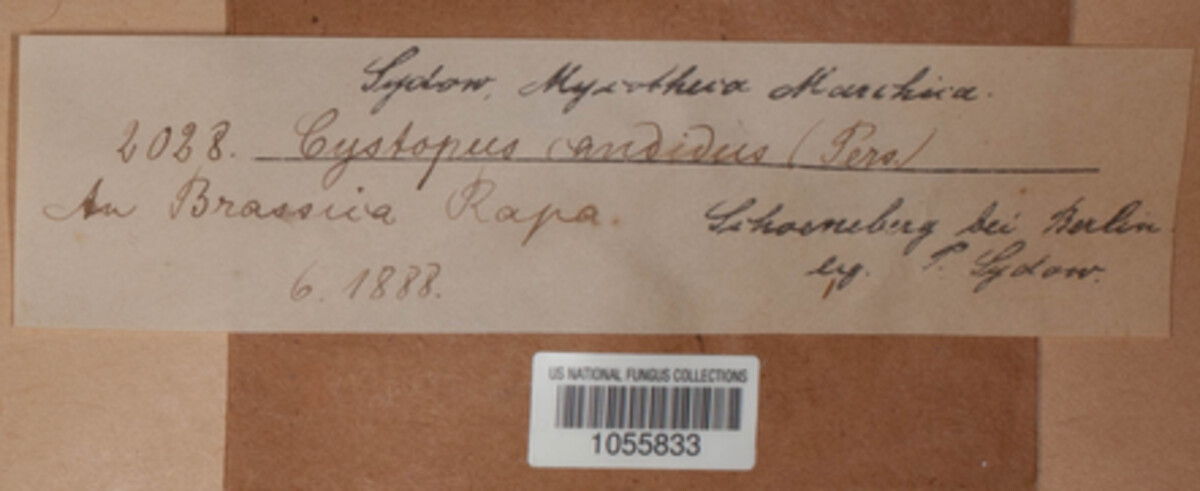 Sydow, Mycotheca Marchica.
2028. Cystopus candidus (Pers.)
An Brassica Rapa.
Schoeneberg bei Berlin
6. 1888.
leg. P. Sydow.
US NATIONAL FUNGUS COLLECTIONS
1055833